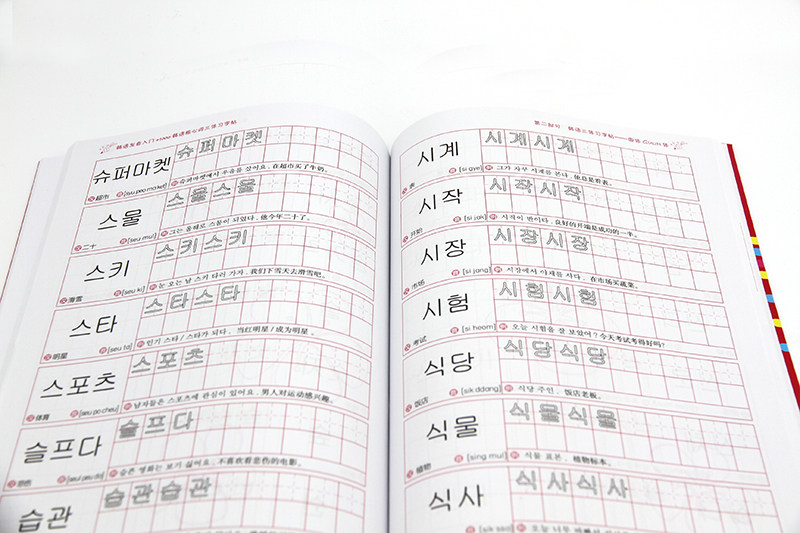 슈퍼마켓 슈퍼마켓
超市 [syu peo ma ket] 슈퍼마켓에서 우유를 샀어요. 在超市买了牛奶。
스물 스물스물
二十 [seu mul] 그는 올해로 스물이 되었다. 他今年二十了。
스키 스키스키
滑雪 [seu ki] 눈 오는 날 스키 타러 가자. 我们下雪天去滑雪吧。
스타 스타스타
明星 [seu ta] 인기 스타 / 스타가 되다. 当红明星 / 成为明星。
스포츠 스포츠
体育 [seu po cheu] 남자들은 스포츠에 관심이 있어요. 男人对运动感兴趣。
슬프다 슬프다
悲伤 [seul peu da] 슬픈 영화는 보기 싫어요. 不喜欢看悲伤的电影。
습관 습관습관
시계 시계시계
表 [si gye] 그가 자꾸 시계를 본다. 他总是看表。
시작 시작시작
开始 [si jak] 시작이 반이다. 良好的开端是成功的一半。
시장 시장시장
市场 [si jang] 시장에서 야채를 사다. 在市场买蔬菜。
시험 시험시험
考试 [si heom] 오늘 시험을 잘 보았어? 今天考试考得好吗?
식당 식당식당
饭店 [sik ddang] 식당 주인. 饭店老板。
식물 식물식물
植物 [sing mul] 식물 표본. 植物标本。
식사 식사식사